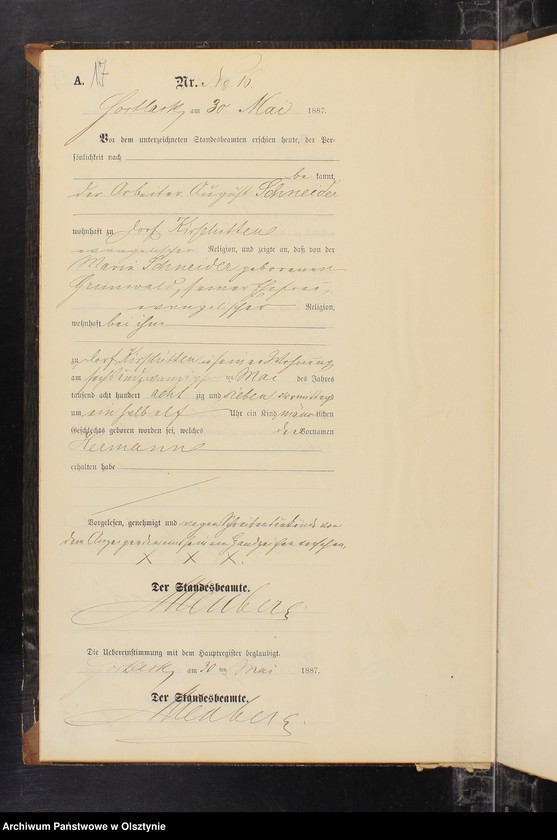 A. 17
Nr. 
am 30 Mai 1887.
Vor dem unterzeneten Standesbeamten erschien heute, der Per-
sönlichkeit nach
be kannt,
der Arbeiter August Schneider
wohnhaft zu Dorf
evangelischer Religion, und zeigte an, daß von der
Maria Schneider geborenen
Grunwald, seiner Ehefrau,
evangelischer Religion,
wohnhaft bei ihm
zu Dorf in seiner Wohnung
am sechsundzwanzigsten Mai des Jahres
tausend acht hundert acht zig und sieben vormittags
um ein halb elf Uhr ein Kind männ lichen
Geschlechts geboren worden sei, welches den Vornamen
Hermann
erhalten habe
Vorgelesen, genehmigt und wegen Schreibensunkunde von
dem Anzeigenden mit seinem Handzeichen versehen.
X X X.
Der Standesbeamte.
Die Uebereinstimmung mit dem Hauptregister beglaubigt.
am 30 ten Mai 1887.
Der Standesbeamte.
Archiwum Państwowe w Olsztynie